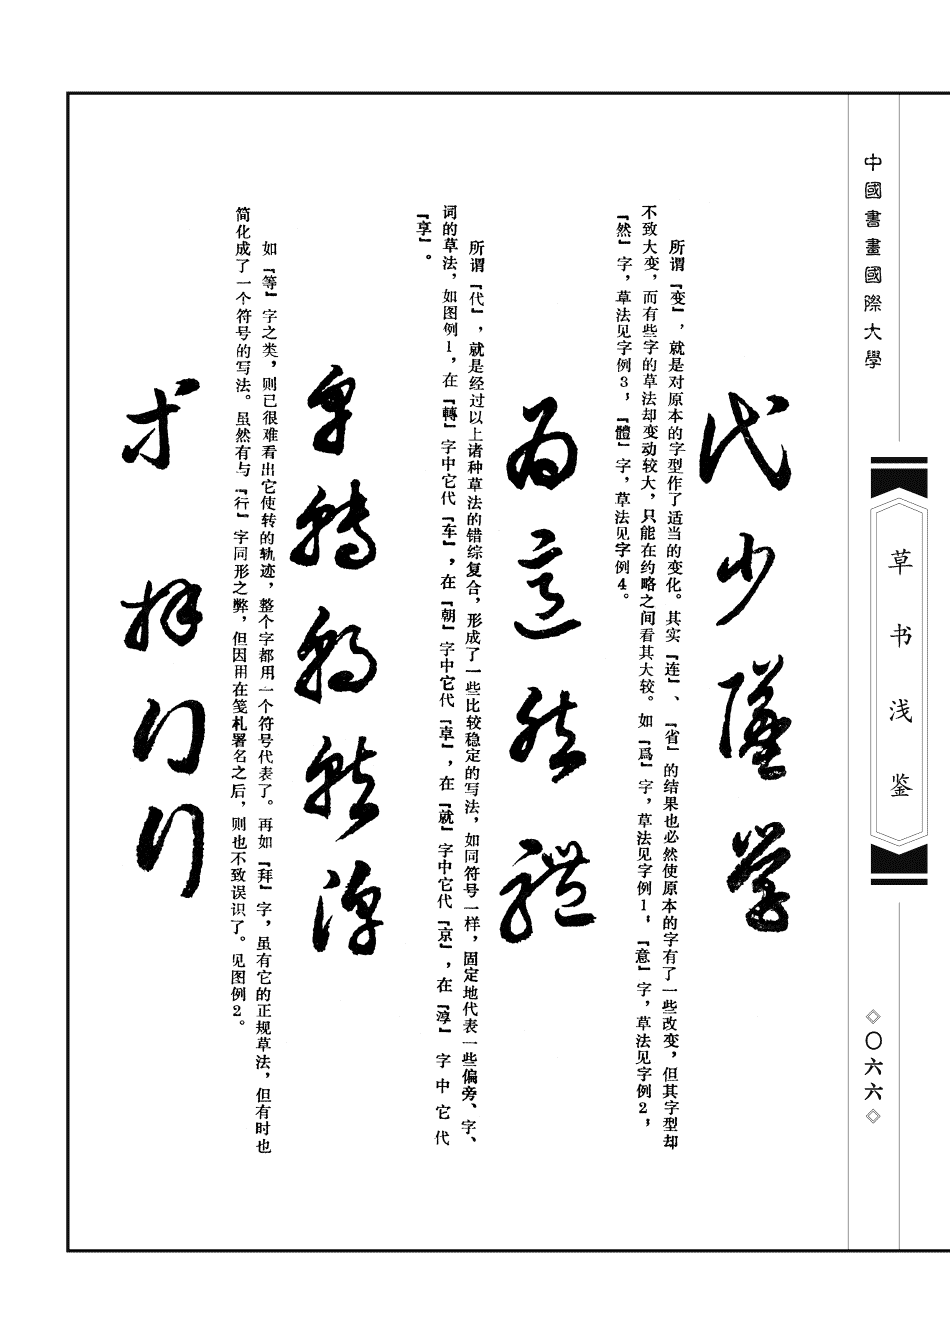 中國書畫國際大學
草书浅鉴
◇〇六六◇
代少 學
所谓『变』，就是对原本的字型作了适当的变化。其实『连』、『省』的结果也必然使原本的字有了一些改变，但其字型却
不致大变，而有些字的草法却变动较大，只能在约略之间看其大较。如『爲』字，草法见字例1，『意』字，草法见字例2，
『然』字，草法见字例3，『體』字，草法见字例4。
爲意然體
所谓『代』，就是经过以上诸种草法的错综复合，形成了一些比较稳定的写法，如同符号一样，固定地代表一些偏旁、字、
词的草法，如图例1，在『轉』字中它代『车』，在『朝』字中它代『卓』，在『就』字中它代『京』，在『淳』字中它代
『享』。
轉朝就淳
如『等』字之类，则已很难看出它使转的轨迹，整个字都用一个符号代表了。再如『拜』字，虽有它的正规草法，但有时也
简化成了一个符号的写法。虽然有与『行』字同形之弊，但因用在笺札署名之后，则也不致误识了。见图例2。
等拜